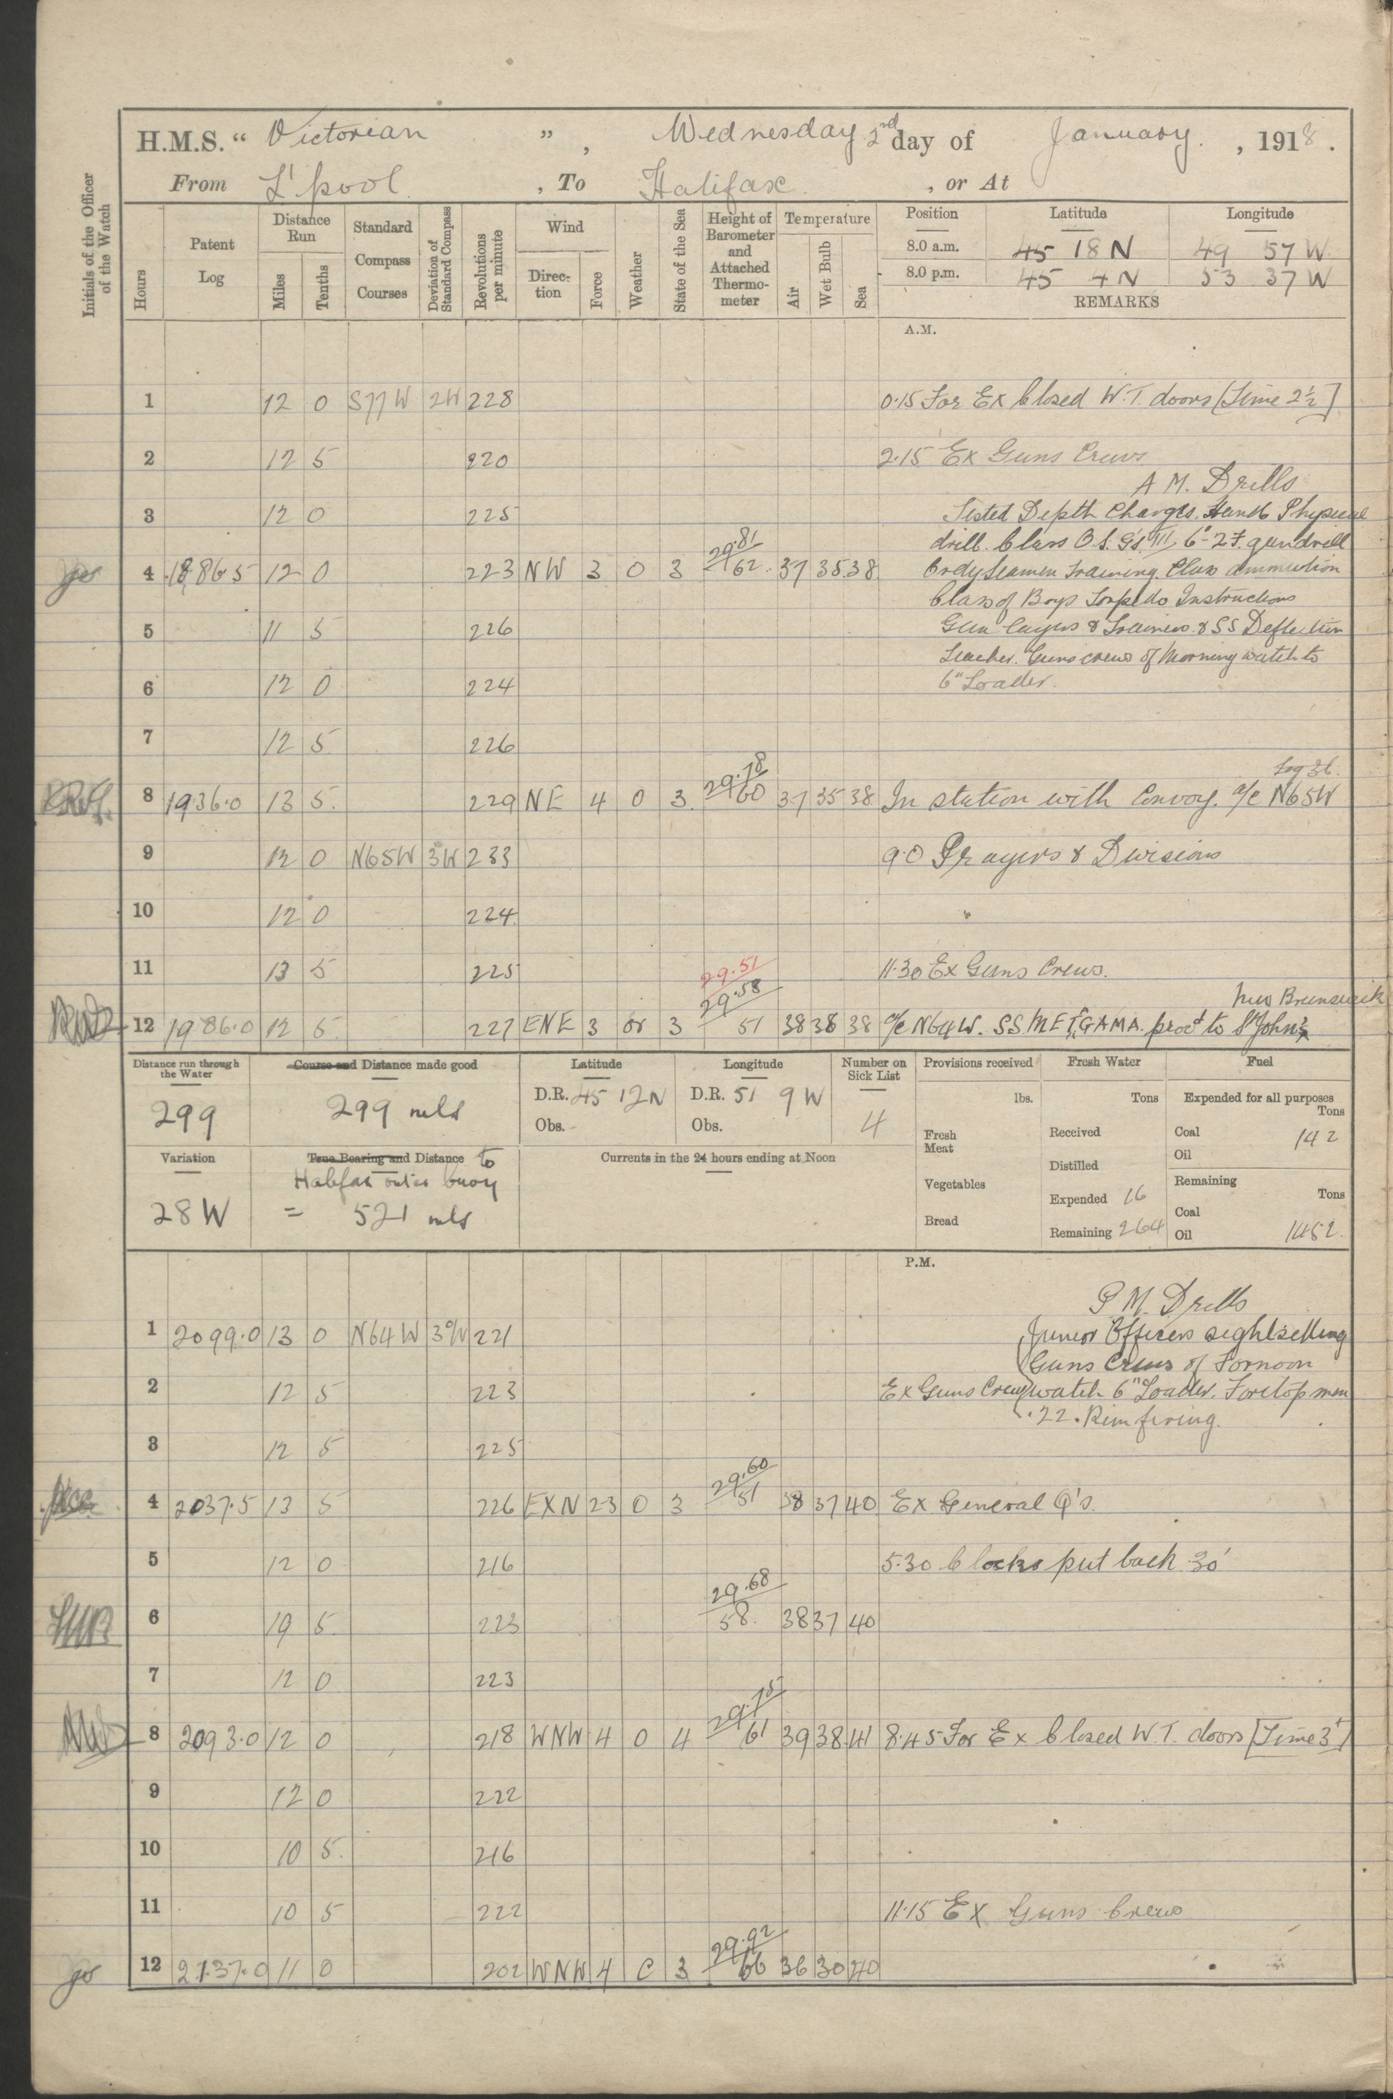 H.M.S. " Victorian ", Wednesday 2nd day of January , 1918.
From L'pool , To Halifax , or At
Initials of the Officer of the Watch
Hours
Patent Log
Distance Run
Miles
Tenths
Standard Compass Courses
Deviation of Standard Compass
Revolutions per minute
Wind
Direction
Force
Weather
State of the Sea
Height of Barometer and Attached Thermometer
Temperature
Air
Wet Bulb
Sea
Position Latitude Longitude
8.0 a.m. 45 18 N 49 57 W
8.0 p.m. 45 4 N 53 37 W
REMARKS
A.M.
1 12 0 S77W 2W 228 0.15 For Ex Closed W.T. doors [Time 2½]
2 12 5 220 2.15 Ex Guns Crews
A M. Drills
3 12 0 225 Tested Depth Charges. Hands Physical
drill. Class O.S. G's III 6" 2F. gundrill
4 1886.5 12 0 223 NW 3 0 3 29.81 62 37 35 38 Ordy Seamen Training. Class ammunition
Class of Boys Torpedo Instructions
5 11 5 226 Gun layers & Trainers & SS Deflection
Teacher. Guns crews of Morning watch to
6 12 0 224 6" Loader.
7 12 5 226
Log 36.
8 1936.0 13 5 229 NE 4 0 3 29.78 60 37 35 38 In station with Convoy. a/c N65W
9 12 0 N65W 3W 233 9.0 Prayers & Divisions
10 12 0 224
11 13 5 225 29.51 11.30 Ex Guns Crews.
New Brunswick
12 1986.0 12 5 227 ENE 3 or 3 29.58 51 38 38 38 a/c N64W. S.S. METGAMA. procd to St John's
Distance run through the Water
299
Course and Distance made good
299 mls
Latitude
D.R. 45 12 N
Obs.
Longitude
D.R. 51 9 W
Obs.
Number on Sick List
4
Provisions received
lbs.
Fresh Meat
Vegetables
Bread
Fresh Water
Tons
Received
Distilled
Expended 16
Remaining 264
Fuel
Expended for all purposes
Tons
Coal 142
Oil
Remaining
Tons
Coal
Oil 1452
Variation
28 W
True Bearing and Distance to
Halifax outer buoy
= 521 mls
Currents in the 24 hours ending at Noon
P.M.
P M. Drills
1 2099.0 13 0 N64W 3°W 221 Junior Officers sightsetting
Guns Crews of Fornoon
2 12 5 223 Ex Guns Crews watch 6" Loader. Foretopmen
.22. Rim firing.
3 12 5 225
4 2037.5 13 5 226 EXN 23 0 3 29.60 51 38 37 40 Ex General Q's.
5 12 0 216 5.30 Clocks put back 30'
6 19 5 223 29.68 58. 38 37 40
7 12 0 223
8 2093.0 12 0 218 WNW 4 0 4 29.75 61 39 38 41 8.45 For Ex Closed W.T. doors [Time 3']
9 12 0 222
10 10 5 216
11 10 5 222 11.15 Ex Guns Crews
12 2137.0 11 0 202 WNW 4 C 3 29.92 66 36 30 40